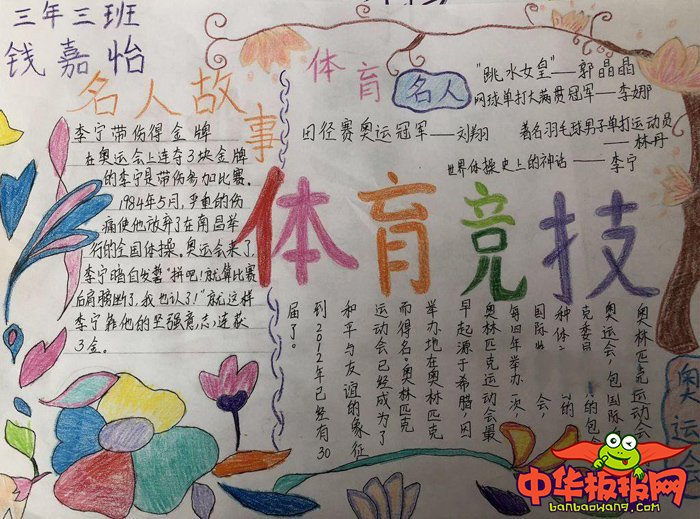 三年三班
钱嘉怡
名人故事
李宁带伤得金牌
在奥运会上连夺3块金牌
的李宁是带伤参加比赛.
1984年5月,严重的伤
病使他放弃了在南昌举
行的全国体操。奥运会来了,
李宁暗自发誓"拼吧!就算比赛
后肩膀断了,我也认了!"就这样
李宁靠他的坚强意志,连获
3金。
体育
名人
"跳水女皇"——郭晶晶
网球单打大满贯冠军——李娜
田径赛奥运冠军——刘翔
著名羽毛球男子单打运动员
——林丹
世界体操史上的神话——李宁
体育竞技
奥运会
奥林匹克运动会
奥运会,包
国际奥
克委员
的包含
种体
的
国际性
会,
每四年举办
次
奥林匹克运动会最
早起源于希腊,因
举办地在奥林匹克
而得名。奥林匹克
运动会已经成为了
和平与友谊的象征
到2012年已经有30
届了。
中华板报网
banbaowang.com